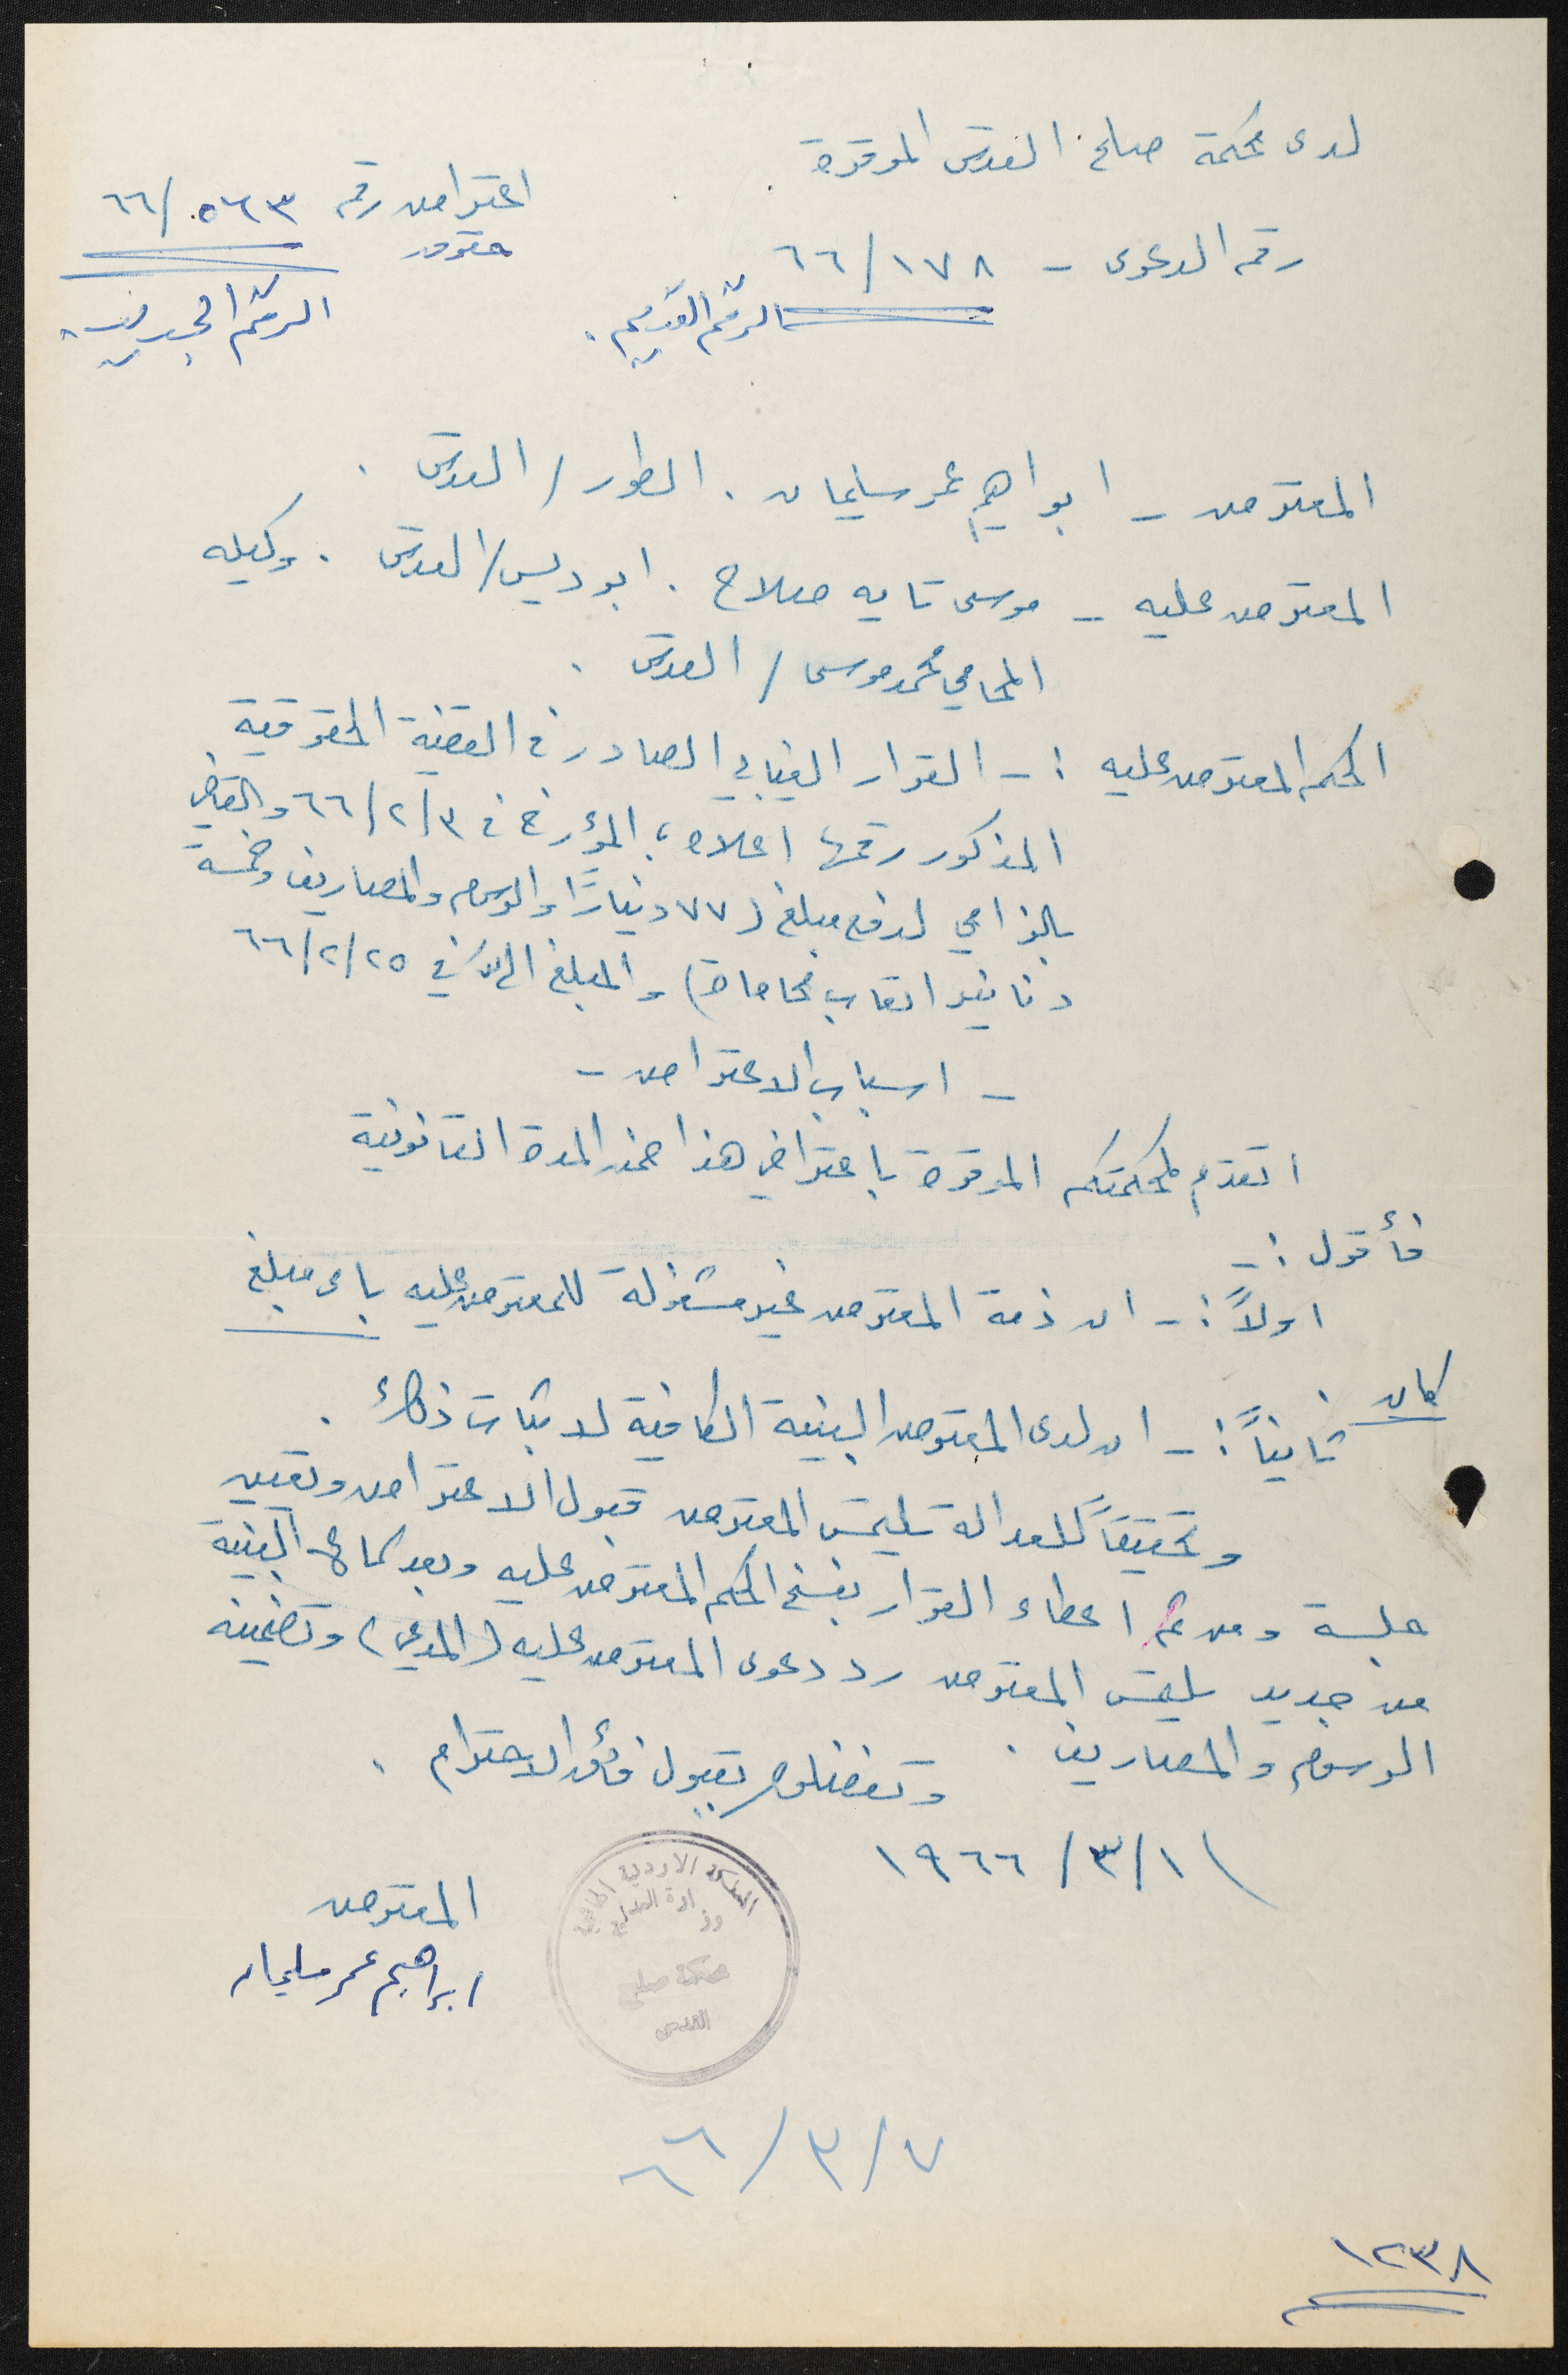 لدى محكمة صلح القدس الموقرة
اعتراض رقم ٥٦٣/٦٦
حقوق
رقم الدعوى - ١٧٨/٦٦
الرقم القديم.
الرقم الجديد.
المعترض - ابراهيم عمر سليمان . الطور / القدس .
المعترض عليه - موسى تايه صلاح . ابوديس / القدس . وكيله
المحامي محمد موسى / القدس .
الحكم المعترض عليه :- القرار الغيابي الصادر في القضية الحقوقية
المذكور رقمها اعلاه ، المؤرخ في ٣/٢/٦٦ والقاضي
بالزامي لدفع مبلغ (٧٧ ديناراً والرسوم والمصاريف وخمسة
دنانير اتعاب محاماة) والمبلغ الي في ٢٥/٢/٦٦
- اسباب الاعتراض -
اتقدم لمحكمتكم الموقرة باعتراضي هذا ضمن المدة القانونية
فأقول :-
اولاً :- ان ذمة المعترض غير مشغولة للمعترض عليه باى مبلغ
كان .
ثانياً :- ان لدى المعترض البينة الكافية لاثبات ذلك .
وتحقيقاً للعدالة يلتمس المعترض قبول الاعتراض وتعيين
جلسة ومن ثم اعطاء القرار بفسخ الحكم المعترض عليه وبعد سماع البينة
من جديد يلتمس المعترض رد دعوى المعترض عليه (المدعي) وتضمينه
الرسوم والمصاريف . وتفضلوا بقبول فائق الاحترام .
١/٣/١٩٦٦
المعترض
ابراهيم عمر سليمان
المملكة الاردنية الهاشمية
وزارة العدلية
محكمة صلح
القدس
٧/٣/٦٦
١٢٣٨